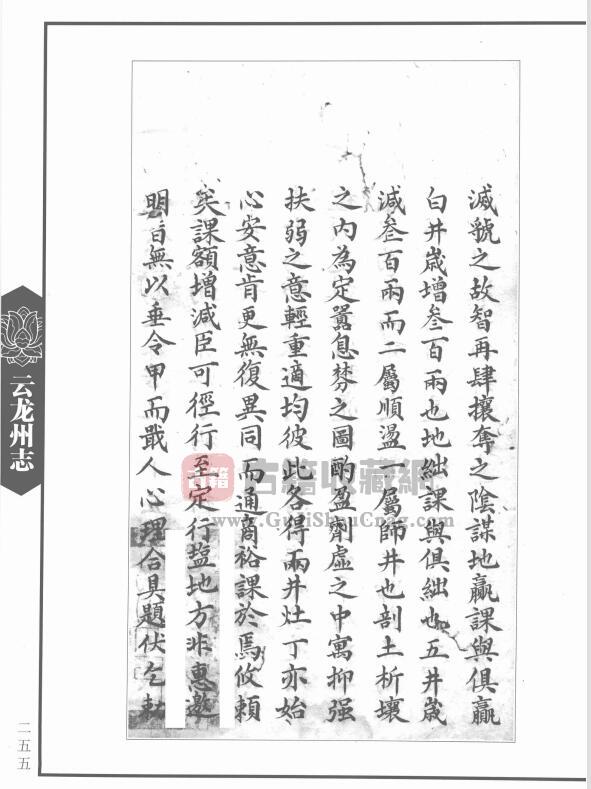 滅虢之故智再肆攘奪之陰謀地贏課與俱贏
白井嵗增叁百兩也地絀課與俱絀也五井嵗
減叁百兩而二屬順盪一屬師井也剖土析壤
之内為定囂息棼之圖酌盈劑虛之中寓抑强
扶弱之意輕重適均彼此各得兩井灶丁亦始
心安意肯更無復異同而通商裕課於焉攸頼
矣課額增減臣可徑行至定行塩地方非惠邀
明旨無以垂令甲而戢人心理合具題伏乞勅
云龙州志
二五五
古籍收藏網
www.GujiShouCang.com